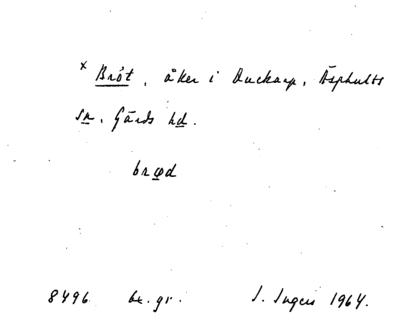 x Bröt, åker i Duckarp, Äsphults
sn, Gärds hd.
brød
8496. be. gr. I. Ingers 1964.